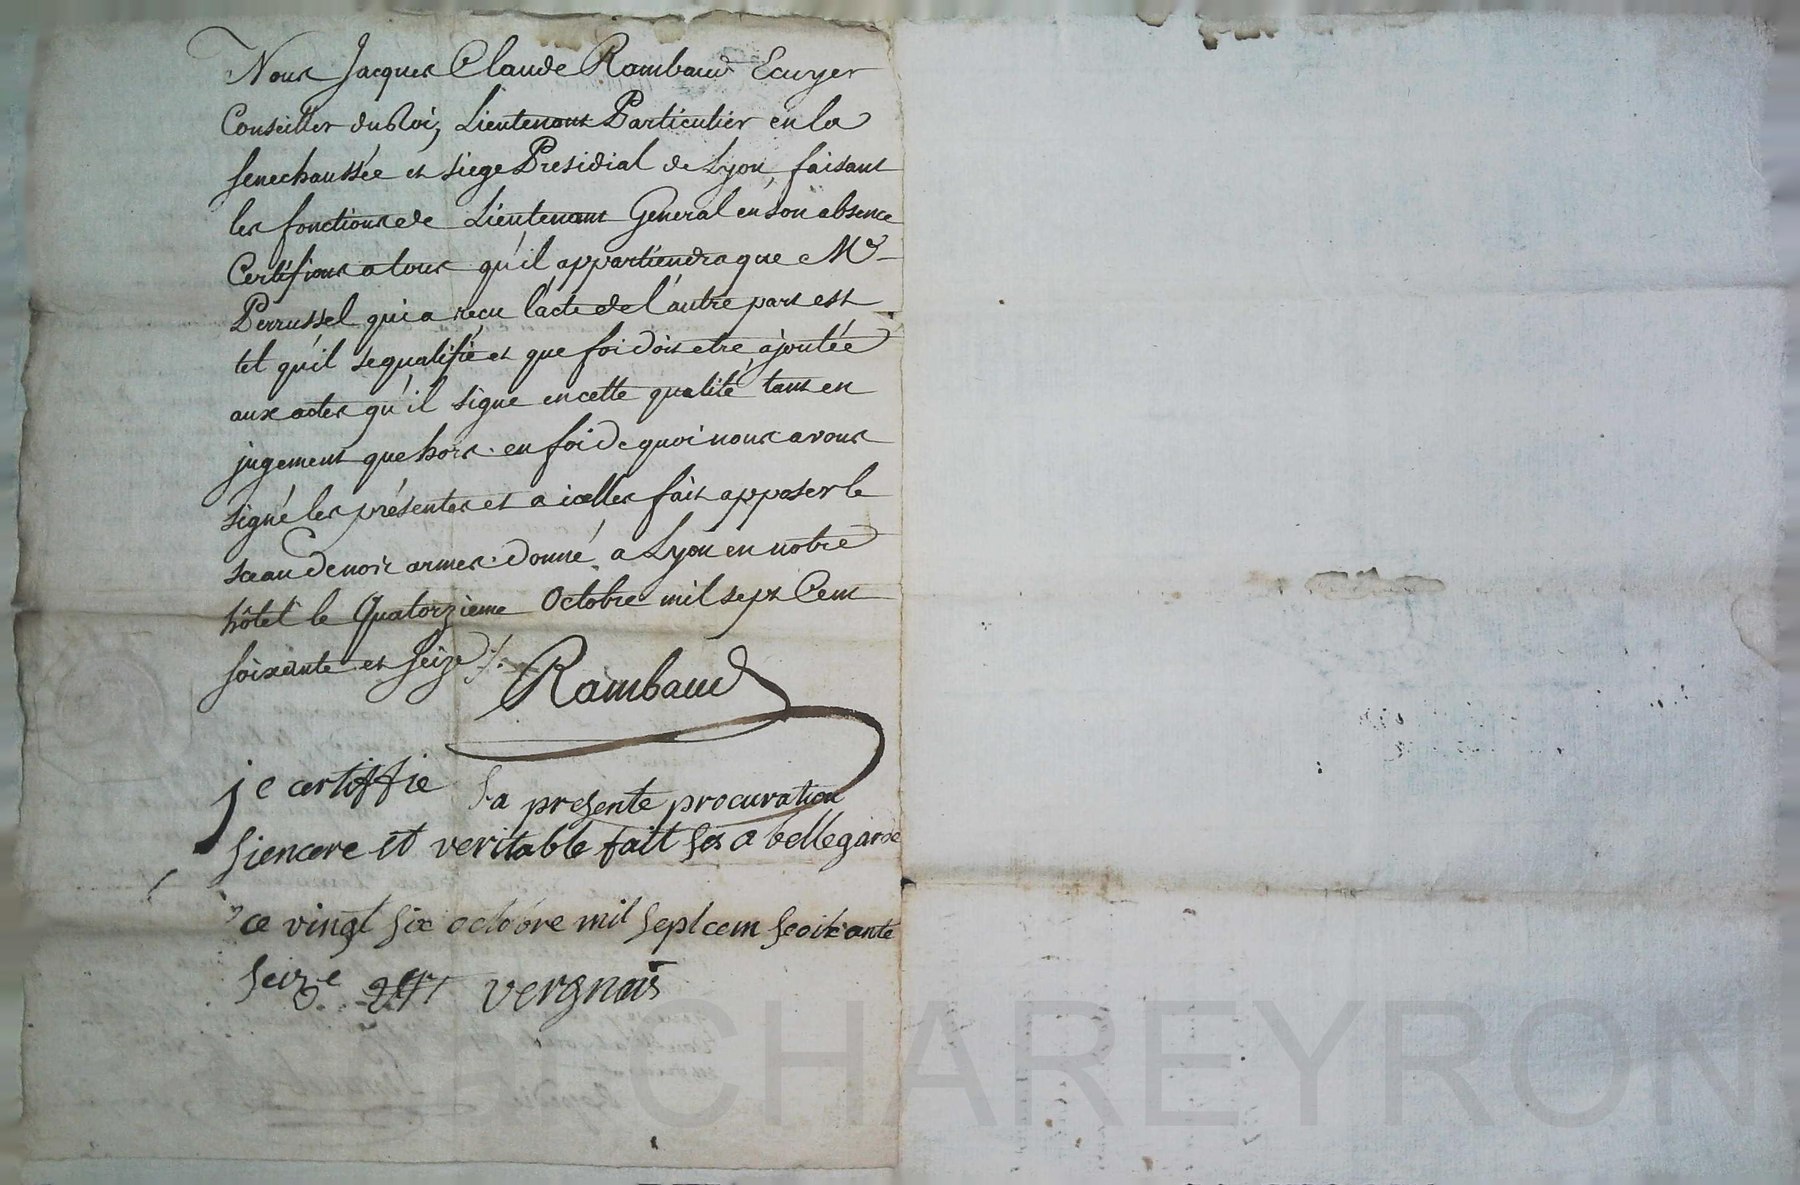 Nous Jacques Claude Rambaud Ecuyer
Conseiller du Roi, Lieutenant Particulier en la
Senechaussée et siege Presidial de Lyon, faisant
les fonctions de Lieutenant General en son absence
Certifions a tous qu'il appartiendra que Me
Perrussel qui a reçu l'acte de l'autre part est
tel qu'il se qualifie et que foi doit etre ajoutée
aux actes qu'il signe en cette qualité tant en
jugement que hors. en foi de quoi nous avons
signé les présentes et a icelles fait apposer le
sceau de nos armes. donné a Lyon en notre
hôtel le Quatorzieme Octobre mil sept Cent
soixante et seize ./.
Rambaud
je certiffie la presente procuration
siencere et veritable fait a bellegarde
ce vingt six octobre mil sept cent soixante
seize vergnais
CHAREYRON